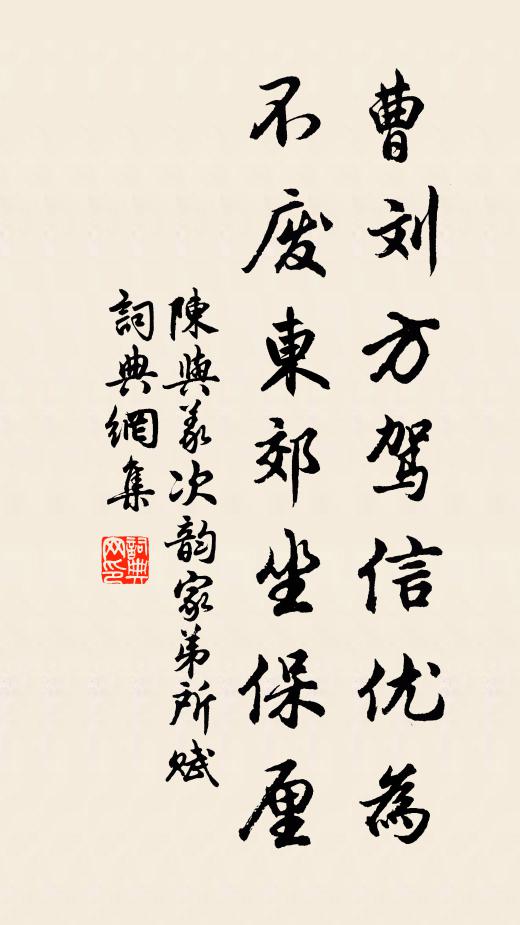 曹刘方驾信优為
不废東郊坐保厘
陳與義次韵家弟所赋
詞典網集
詞典网印